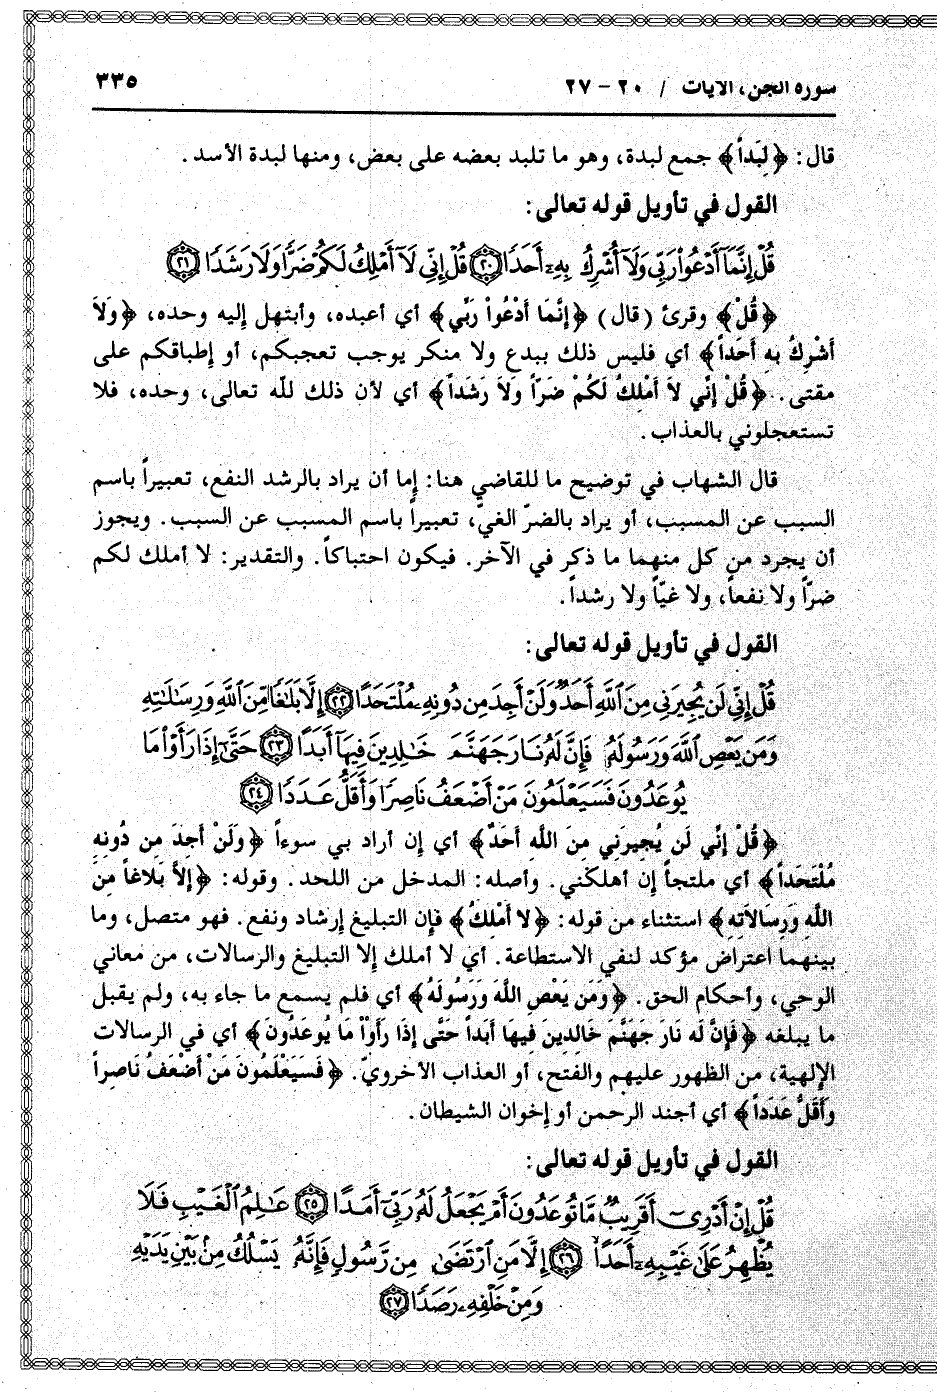 سورة الجن، الآيات / ٢٠ - ٢٧
٣٣٥
قال: ﴿لِبَداً﴾ جمع لبدة، وهو ما تلبد بعضه على بعض، ومنها لبدة الأسد.
القول في تأويل قوله تعالى:
قُلْ إِنَّمَآ أَدْعُوا۟ رَبِّى وَلَآ أُشْرِكُ بِهِۦٓ أَحَدًا ٢٠ قُلْ إِنِّى لَآ أَمْلِكُ لَكُمْ ضَرًّا وَلَا رَشَدًا ٢١
﴿قُلْ﴾ وقرئ (قال) ﴿إِنَّمَا أَدْعُواْ رَبِّي﴾ أي أعبده، وأبتهل إليه وحده، ﴿وَلاَ
أُشْرِكُ بِهِ أَحَداً﴾ أي فليس ذلك ببدع ولا منكر يوجب تعجبكم، أو إطباقكم على
مقتى. ﴿قُلْ إِنِّي لاَ أَمْلِكُ لَكُمْ ضَرّاً وَلاَ رَشَداً﴾ أي لأن ذلك لله تعالى، وحده، فلا
تستعجلوني بالعذاب.
قال الشهاب في توضيح ما للقاضي هنا: إما أن يراد بالرشد النفع، تعبيراً باسم
السبب عن المسبب، أو يراد بالضرّ الغيّ، تعبيراً باسم المسبب عن السبب. ويجوز
أن يجرد من كل منهما ما ذكر في الآخر. فيكون احتباكاً. والتقدير: لا أملك لكم
ضرّاً ولا نفعاً، ولا غيّاً ولا رشداً.
القول في تأويل قوله تعالى:
قُلْ إِنِّى لَن يُجِيرَنِى مِنَ ٱللَّهِ أَحَدٌ وَلَنْ أَجِدَ مِن دُونِهِۦ مُلْتَحَدًا ٢٢ إِلَّا بَلَٰغًا مِّنَ ٱللَّهِ وَرِسَٰلَٰتِهِ
وَمَن يَعْصِ ٱللَّهَ وَرَسُولَهُۥ فَإِنَّ لَهُۥ نَارَ جَهَنَّمَ خَٰلِدِينَ فِيهَآ أَبَدًا ٢٣ حَتَّىٰٓ إِذَا رَأَوْا۟ مَا
يُوعَدُونَ فَسَيَعْلَمُونَ مَنْ أَضْعَفُ نَاصِرًا وَأَقَلُّ عَدَدًا ٢٤
﴿قُلْ إِنِّي لَن يُجِيرَني مِنَ اللَّهِ أَحَدٌ﴾ أي إن أراد بي سوءاً ﴿وَلَنْ أَجِدَ مِن دُونِهِ
مُلْتَحَداً﴾ أي ملتجأ إن أهلكني. وأصله: المدخل من اللحد. وقوله: ﴿إِلاَّ بَلاَغاً مِنَ
اللَّهِ وَرِسَالاَتِهِ﴾ استثناء من قوله: ﴿لا أَمْلِكُ﴾ فإن التبليغ إرشاد ونفع. فهو متصل، وما
بينهما اعتراض مؤكد لنفي الاستطاعة. أي لا أملك إلا التبليغ والرسالات، من معاني
الوحي، وأحكام الحق. ﴿وَمَن يَعْصِ اللَّهَ وَرَسُولَهُ﴾ أي فلم يسمع ما جاء به، ولم يقبل
ما يبلغه ﴿فَإِنَّ لَه نَارَ جَهَنَّمَ خَالِدِينَ فِيهَا أَبَداً حَتَّى إِذَا رَأَوْاْ مَا يُوعَدُونَ﴾ أي في الرسالات
الإلهية، من الظهور عليهم والفتح، أو العذاب الأخرويّ. ﴿فَسَيَعْلَمُونَ مَنْ أَضْعَفُ نَاصِراً
وَأَقَلُّ عَدَداً﴾ أي أجند الرحمن أو إخوان الشيطان.
القول في تأويل قوله تعالى:
قُلْ إِنْ أَدْرِىٓ أَقَرِيبٌ مَّا تُوعَدُونَ أَمْ يَجْعَلُ لَهُۥ رَبِّىٓ أَمَدًا ٢٥ عَٰلِمُ ٱلْغَيْبِ فَلَا
يُظْهِرُ عَلَىٰ غَيْبِهِۦٓ أَحَدًا ٢٦ إِلَّا مَنِ ٱرْتَضَىٰ مِن رَّسُولٍ فَإِنَّهُۥ يَسْلُكُ مِنۢ بَيْنِ يَدَيْهِ
وَمِنْ خَلْفِهِۦ رَصَدًا ٢٧